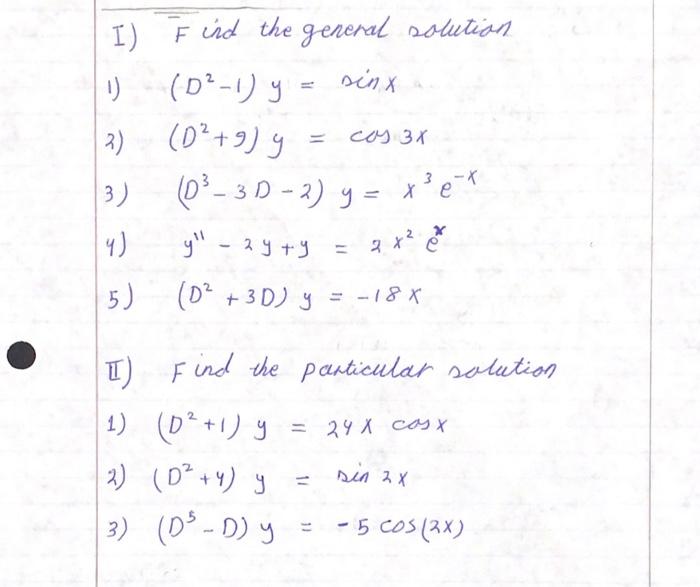 I) Find the general solution
1) (D² - 1) y = sin x
2) (D² + 9) y = cos 3x
3) (D³ - 3D - 2) y = x³ e⁻ˣ
4) y'' - 2y + y = 2x² eˣ
5) (D² + 3D) y = -18x
II) Find the particular solution
1) (D² + 1) y = 24x cos x
2) (D² + 4) y = sin 2x
3) (D⁵ - D) y = -5 cos(2x)